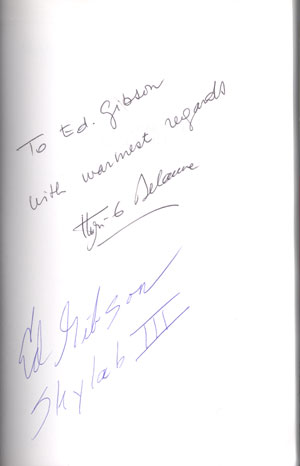 To Ed. Gibson
with warmest regards
Delaune
Ed Gibson
Skylab III